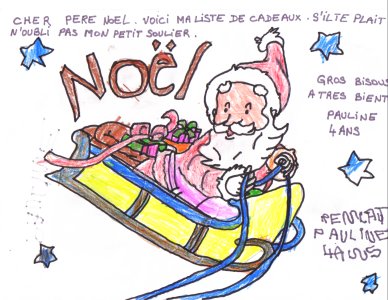 CHER PERE NOEL. VOICI MA LISTE DE CADEAUX. S'ILTE PLAIT
N'OUBLI PAS MON PETIT SOULIER.
NOËl
GROS BISOUS
A TRES BIENT
PAULINE
4 ANS
PAULINE
4ANS